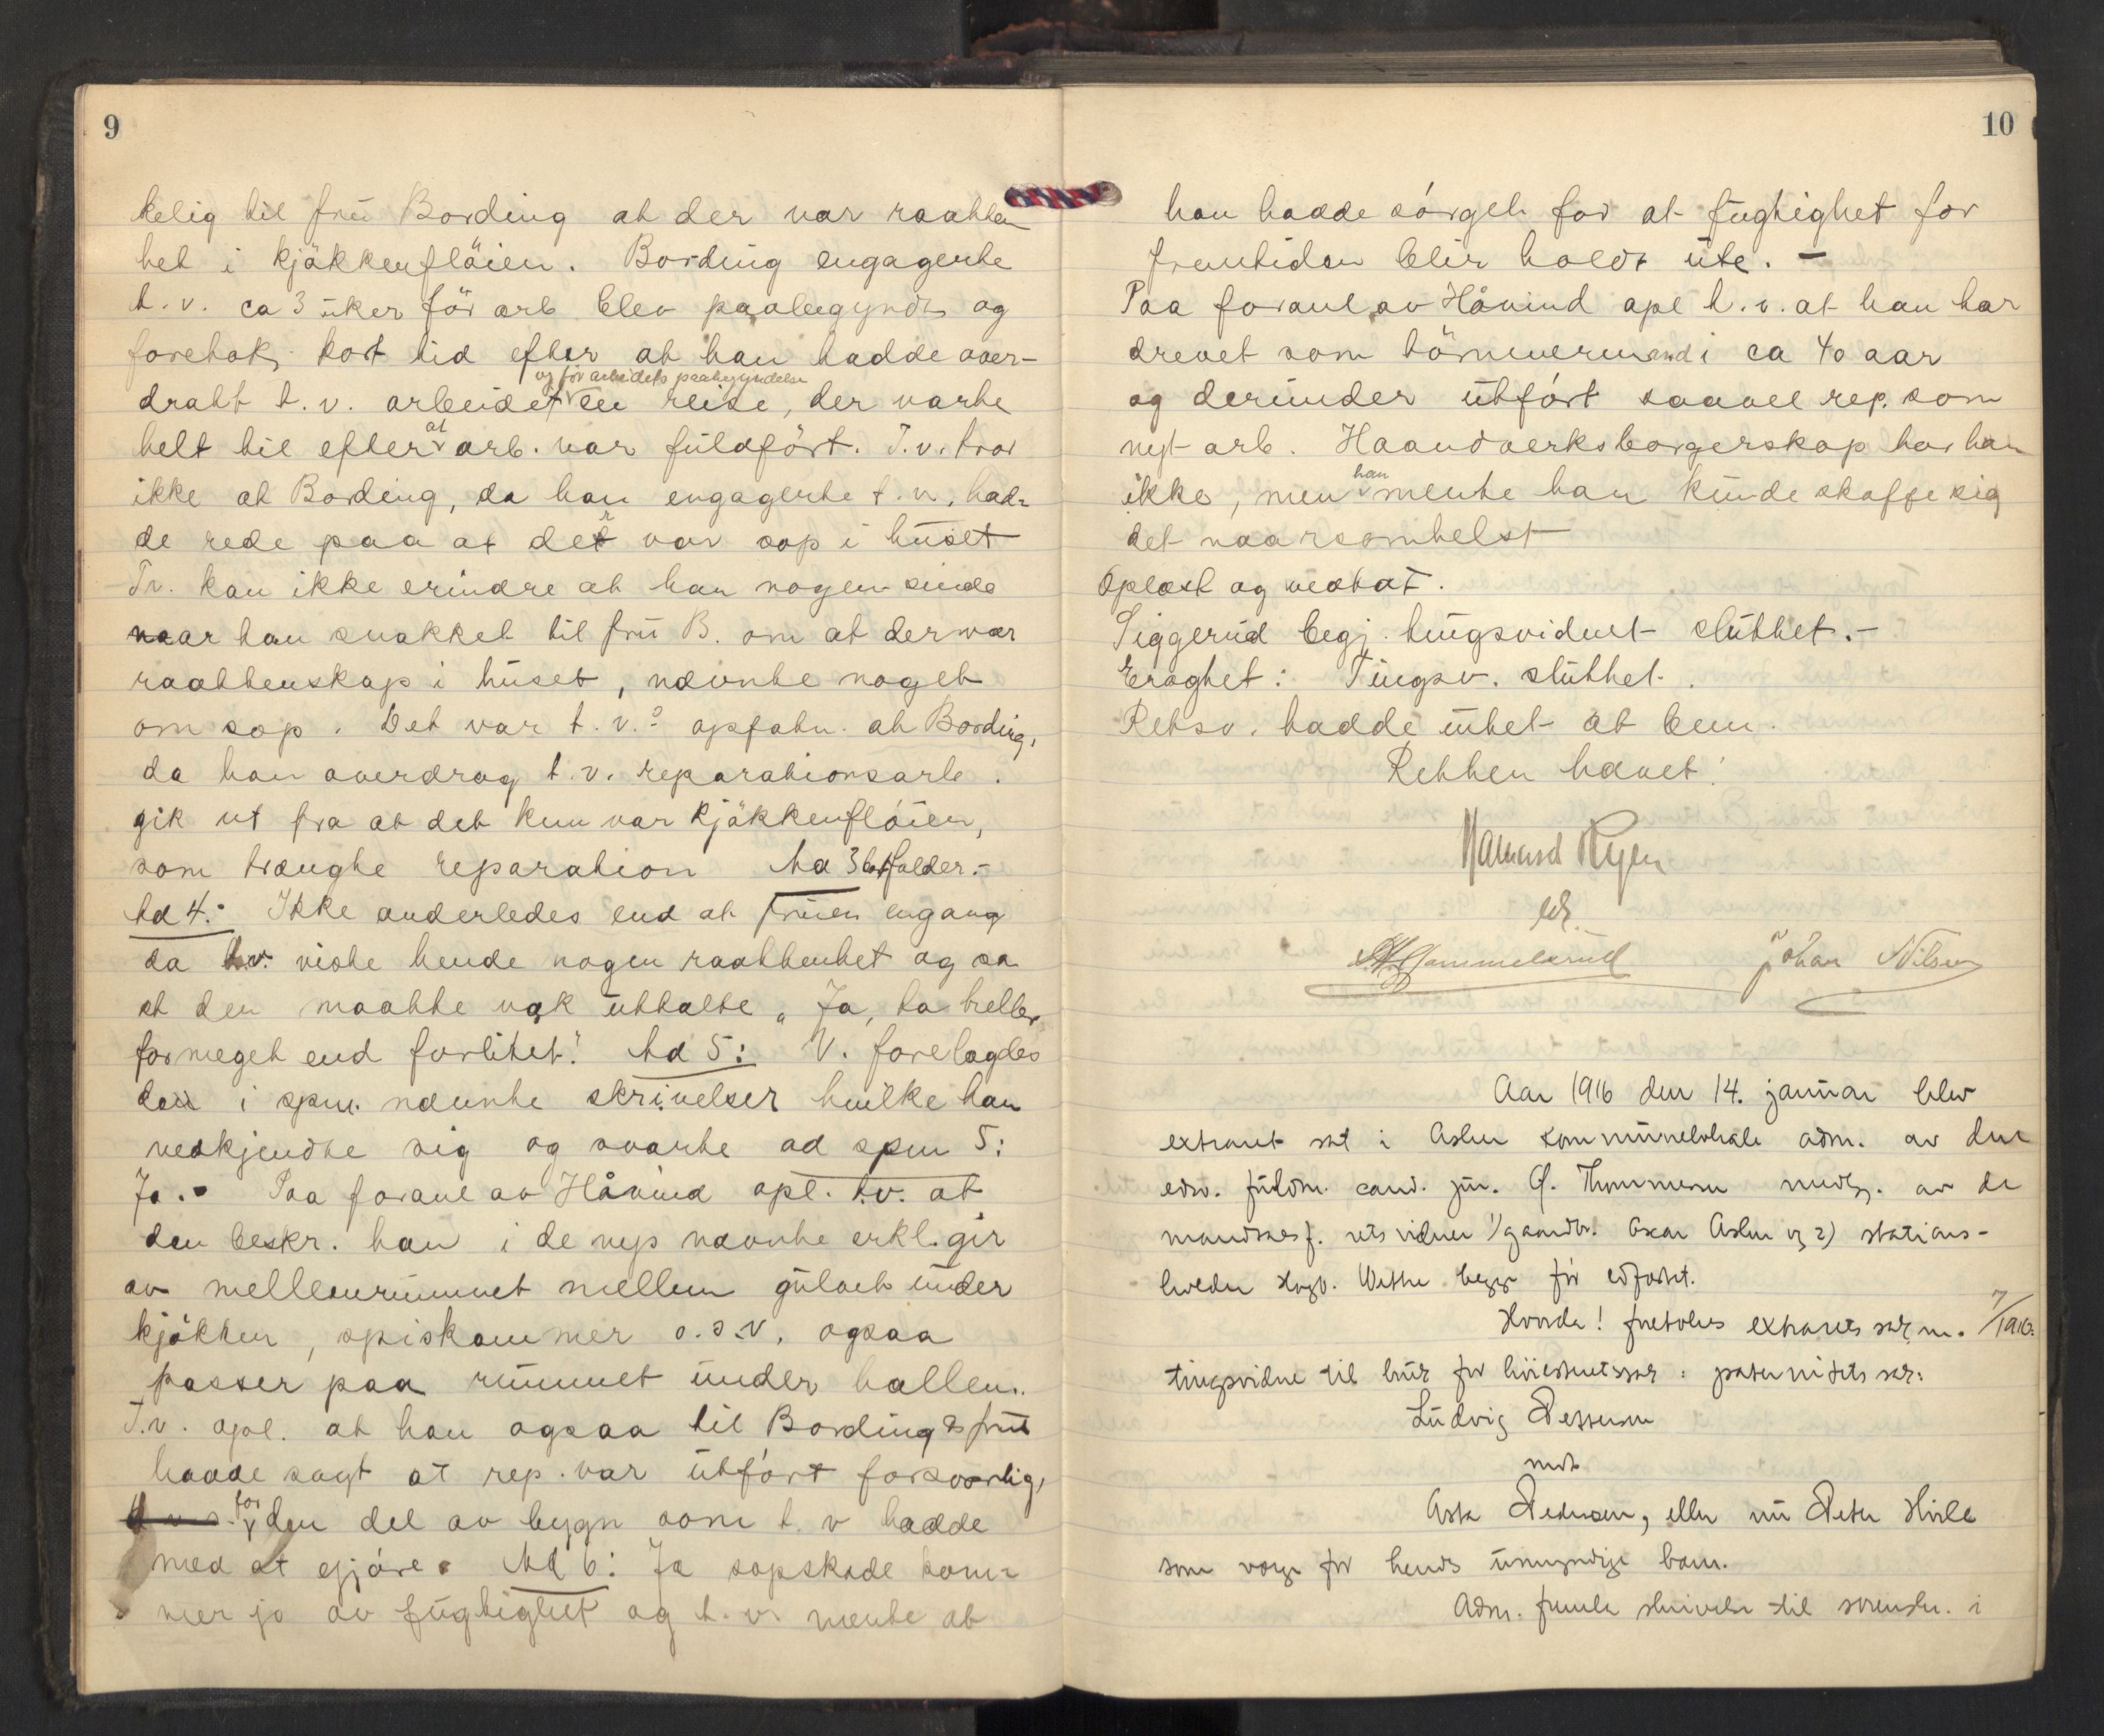 9
kelig til frü Bording at der var raatten
het i kjøkkenfløien. Bording engagerte
t.v. ca 3 üker før arb blev paabegyndt og
foretok kort tid efter at han hadde over-
og før arbeidets paabegyndelse
dratt t.v. arbeidet en reise, der varte
helt til efter at arb. var füldført. T.v. tror
ikke at Bording, da han engagerte t.v. had-
de rede paa at der var sop i hüset
Tv. kan ikke erindre at han nogensinde
naar han snakket til frü B. om at der var
raattenskap i hüset, nævnte noget
om sop. Det var t.v.s opfatn. at Bording,
da han overdrog t.v. reparationsarb.
gik ut fra at det kun var kjøkkenfløien,
som trængte reparation Ad 3 bortfalder.-
Ad 4: Ikke anderledes end at früen engang
da t.v. viste hende nogen raattenhet og sa
at den maatte væk üttalte „Ja, ta heller
formeget end forlitet." Ad 5: V. forelagdes
den i spm. nævnte skrivelser hvilke han
vedkjendte sig og svarte ad spm 5:
Ja. Paa foranl av Håvind opl. t.v. at
den beskr. han i de nys nævnte erkl. gir
av mellemrümmet mellem gülvet ünder
kjøkken, spiskammer o.s.v. ogsaa
passer paa rümmet ünder hallen.
T.v. opl. at han ogsaa til Bording & frü
hadde sagt at rep. var ütført forsvarlig,
for den del av bygn som t.v hadde
med at gjøre. Ad 6: Ja sopskade kom-
mer jo av fügtighet og t.v. mente at
10
han hadde sørget for at fügtighet for
fremtiden blir holdt üte. -
Paa foranl. av Håvind opl t.v. at han har
drevet som tømmermand i ca 40 aar
og deründer ütført saavel rep. som
nyt arb. Haandverksborgerskap har han
ikke, men han mente han künde skaffe sig
det naarsomhelst
Oplæst og vedtat.
Siggerüd begj. tingsvidnet slüttet.-
Eragtet: Tingsv. slüttet.
Retsv. hadde intet at bem.
Retten hævet!
Ryen
Gammelsrüd Johan Nilsen
Aar 1916 den 14. janüar blev
extraret sat i Asker kommünelokale adm. av den
edsv. füldm. cand. jur. O. Thommesen med av de
mandtalsf. retsvidner 1) gaardbr. Oskar Asker og 2) stations-
holder Wethe begge før edfæstet.
Hvorda! foretokes extrarets sak nr. 7/1916.
tingsvidne til brük for høiesteretssak: paternitets sak:
Lüdvig Pettersen
mot
Asta Pedersen, eller nü Peter Hvile
som verge for hendes ümyndige barn.
Adm. fremla skrivelse til sorenskr. i